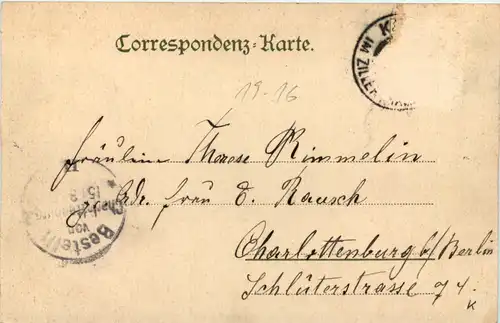 Correspondenz-Karte.
IM ZILLER
19-16
Fräulein Therese Rimmelin
Adr. Frau E. Rausch
Charlottenburg b/Berlin
Schlüterstrasse 74.
K
Bestellt
vom